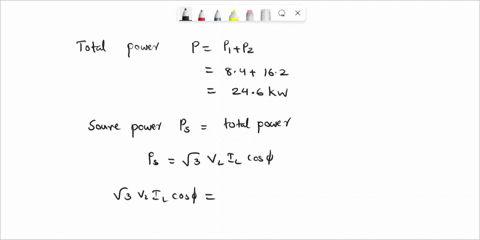 Total power P = P₁ + P₂
= 8.4 + 16.2
= 24.6 kw
Source power Pₛ = total power
Pₛ = √3 V_L I_L cosϕ
√3 V_L I_L cosϕ =